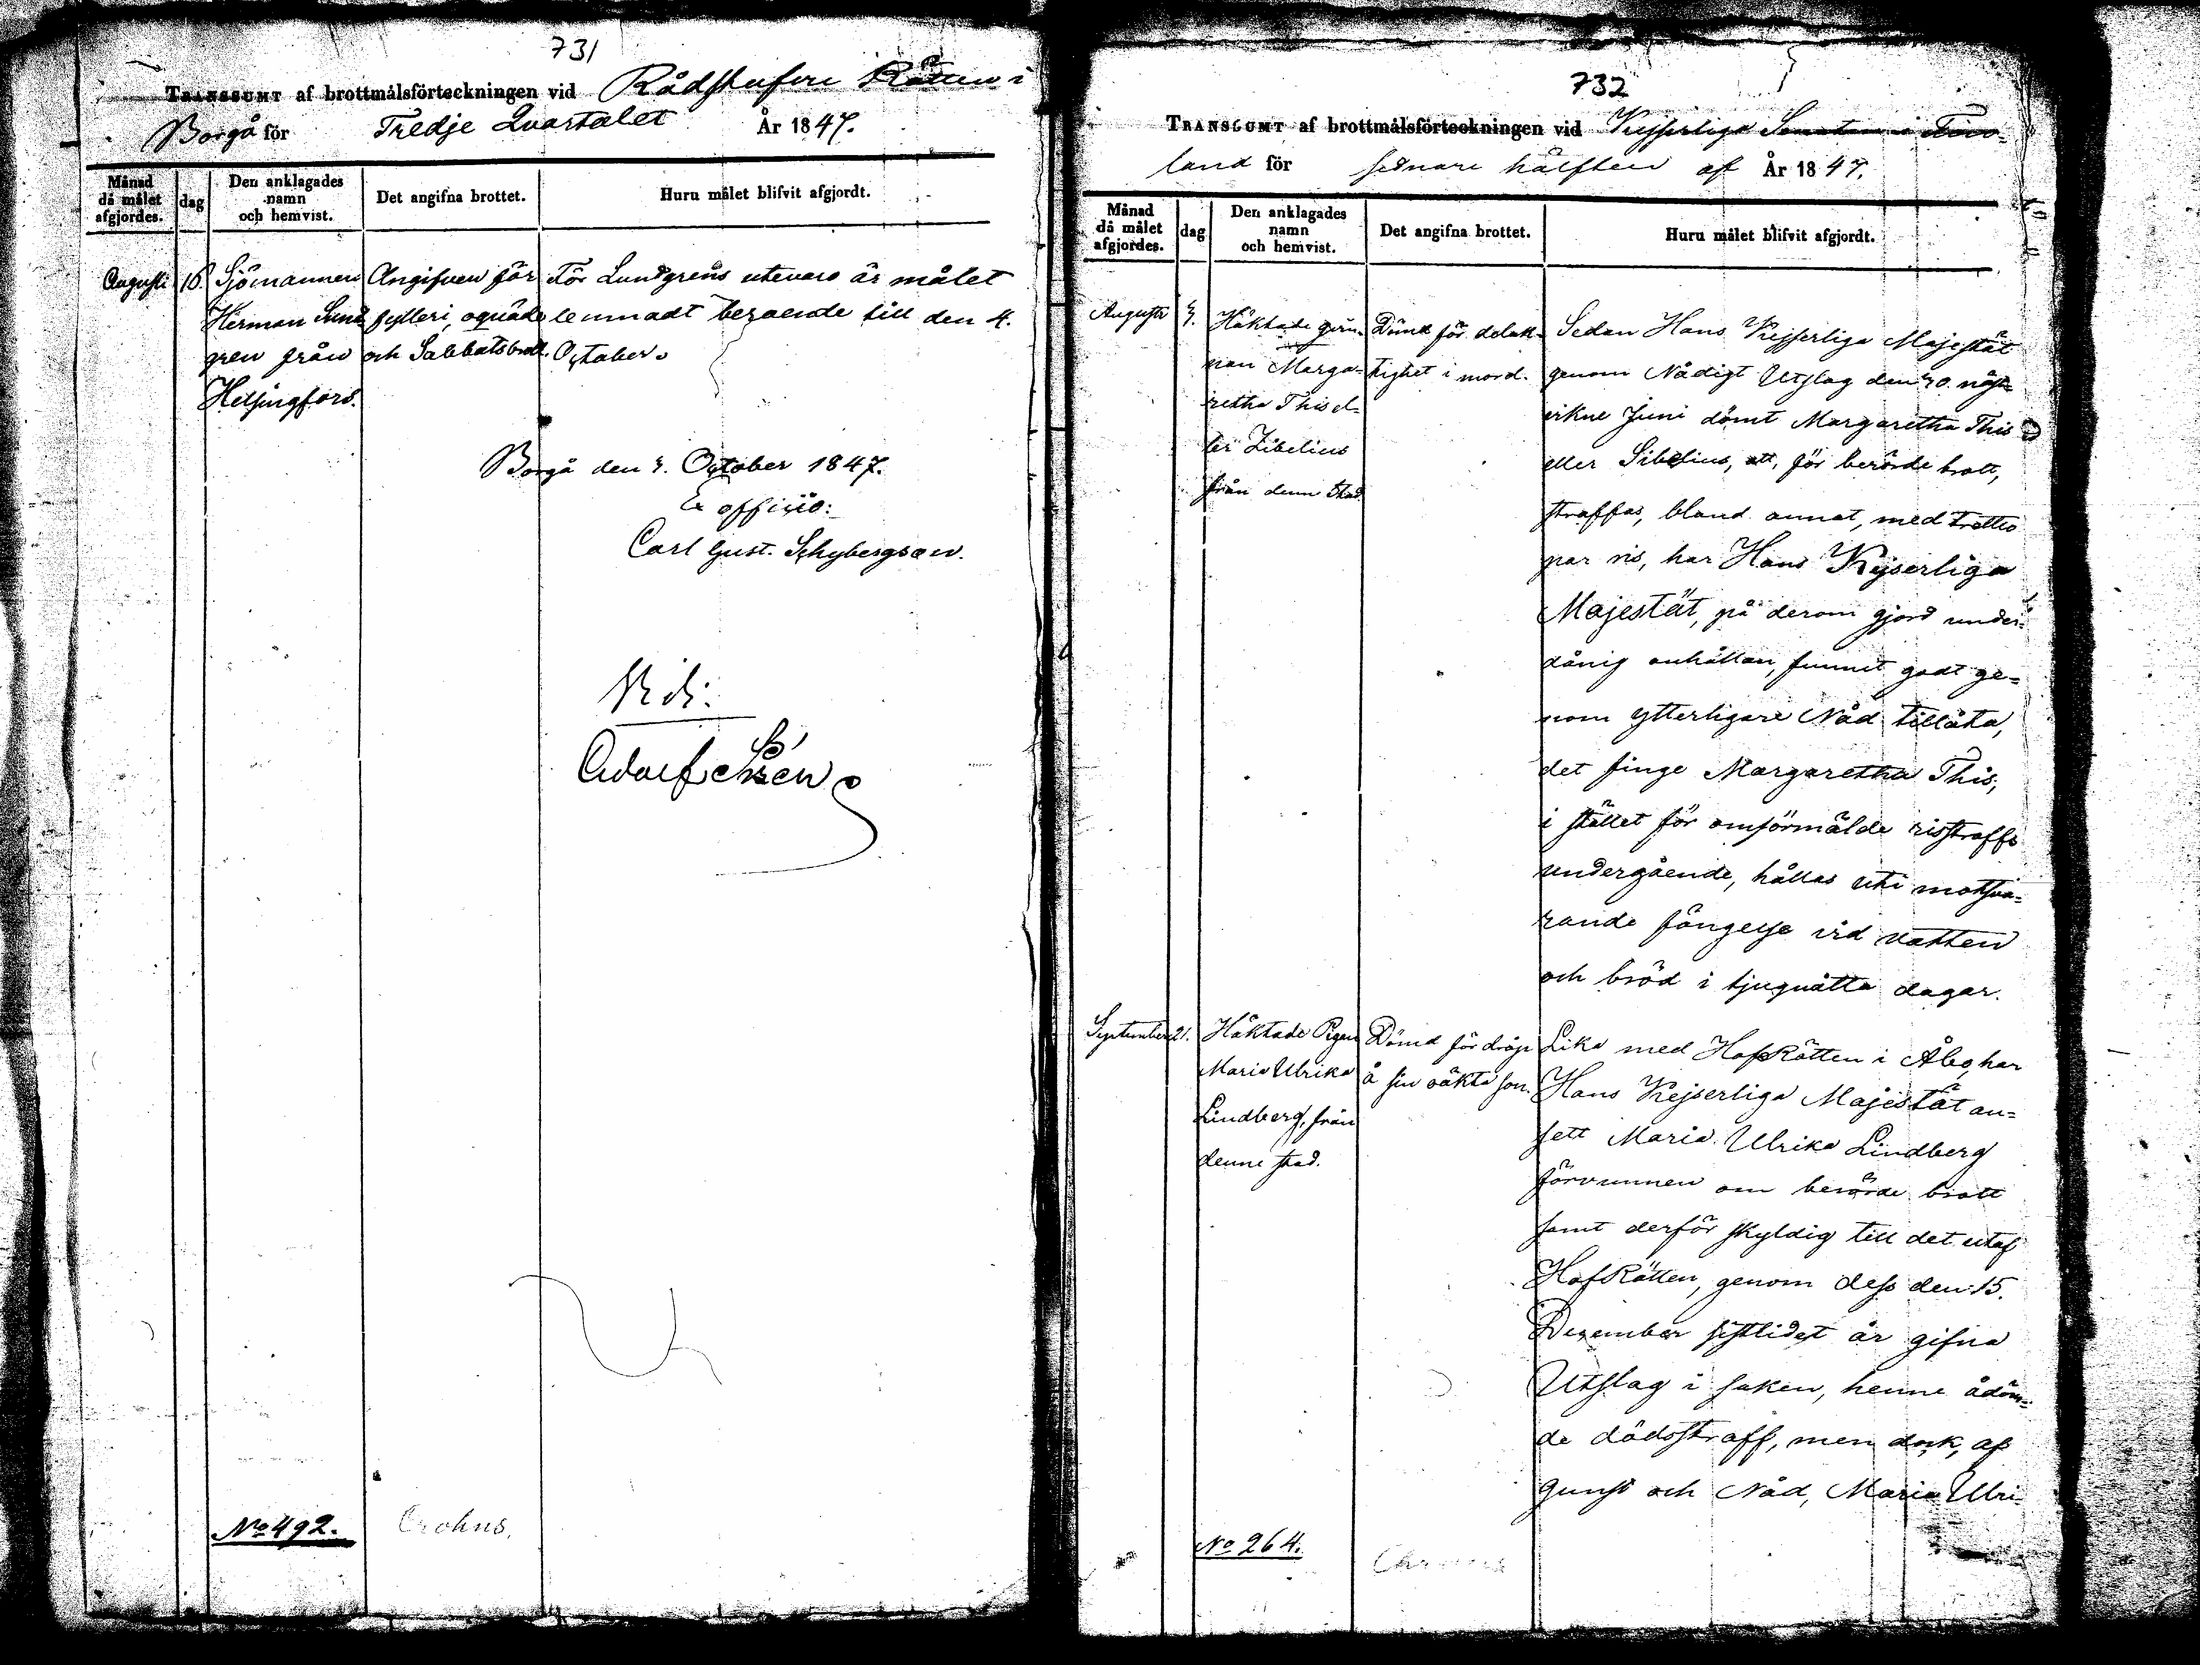 731
TRANSSUMT af brottmålsförteckningen vid Rådstufvu Rätten i
Borgå för Tredje Quartalet År 1847.
Månad då målet afgjordes.
dag
Den anklagades namn och hemvist.
Det angifna brottet.
Huru målet blifvit afgjordt.
Augusti 16. Sjömannen Angifven för För Lundgrens utevaro är målet
Herman Lund fylleri, oqväde lemnadt beroende till den 4.
gren från och Sabbatsbrott. October.
Helsingfors.
Borgå den 4. October 1847.
Ex officio:
Carl Gust. Schybergson.
Vidi:
No 492.
Crohns.
732
TRANSSUMT af brottmålsförteckningen vid Kejserliga Senaten i Finn-
land för sednare hälften af År 1847.
Månad då målet afgjordes.
dag
Den anklagades namn och hemvist.
Det angifna brottet.
Huru målet blifvit afgjordt.
Augusti
Häktade qvin-
nan Marga-
retha This el-
ler Zibelius
från denna stad
Dömd för delak-
tighet i mord.
Sedan Hans Kejserliga Majestät
genom Nådigt Utslag den 30. näst-
vikne Juni dömt Margaretha This
eller Sibelius, att, för berörde brott,
straffas, bland annat, med trettio
par ris, har Hans Kejserliga
Majestät, på derom gjord under-
dånig anhållan, funnit godt ge-
nom ytterligare Nåd tillåta,
det finge Margaretha This,
i stället för omförmälde risstraffs
undergående, hållas uti motsva-
rande fängelse vid vatten
och bröd i tjuguåtta dagar.
September 21.
Häktade Pigan
Maria Ulrika
Lindberg, från
denne stad.
Dömd för dråp
å sin oäkta son.
Lika med HofRätten i Åbo, har
Hans Kejserliga Majestät an-
sett Maria Ulrika Lindberg
förvunnen om berörde brott
samt derför skyldig till det utaf
HofRätten, genom dess den 15.
December sistlidet år gifna
Utslag i saken, henne ådöm-
de dödsstraff, men dock, af
gunst och Nåd, Maria Ulri-
No 264.